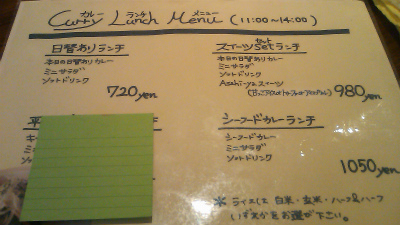 カレー ランチ メニュー
Curry Lunch Menu (11:00~14:00)
日替わりランチ
本日の日替わりカレー
ミニサラダ
ソフトドリンク
720yen
セット
スイーツsetランチ
本日の日替わりカレー
ミニサラダ
ソフトドリンク
Asahi-yaスイーツ
980yen
平
シーフードカレーランチ
シーフードカレー
ミニサラダ
ソフトドリンク
1050yen
* ライスは 白米・玄米・ハーフ&ハーフ
いずれかをお選び下さい。